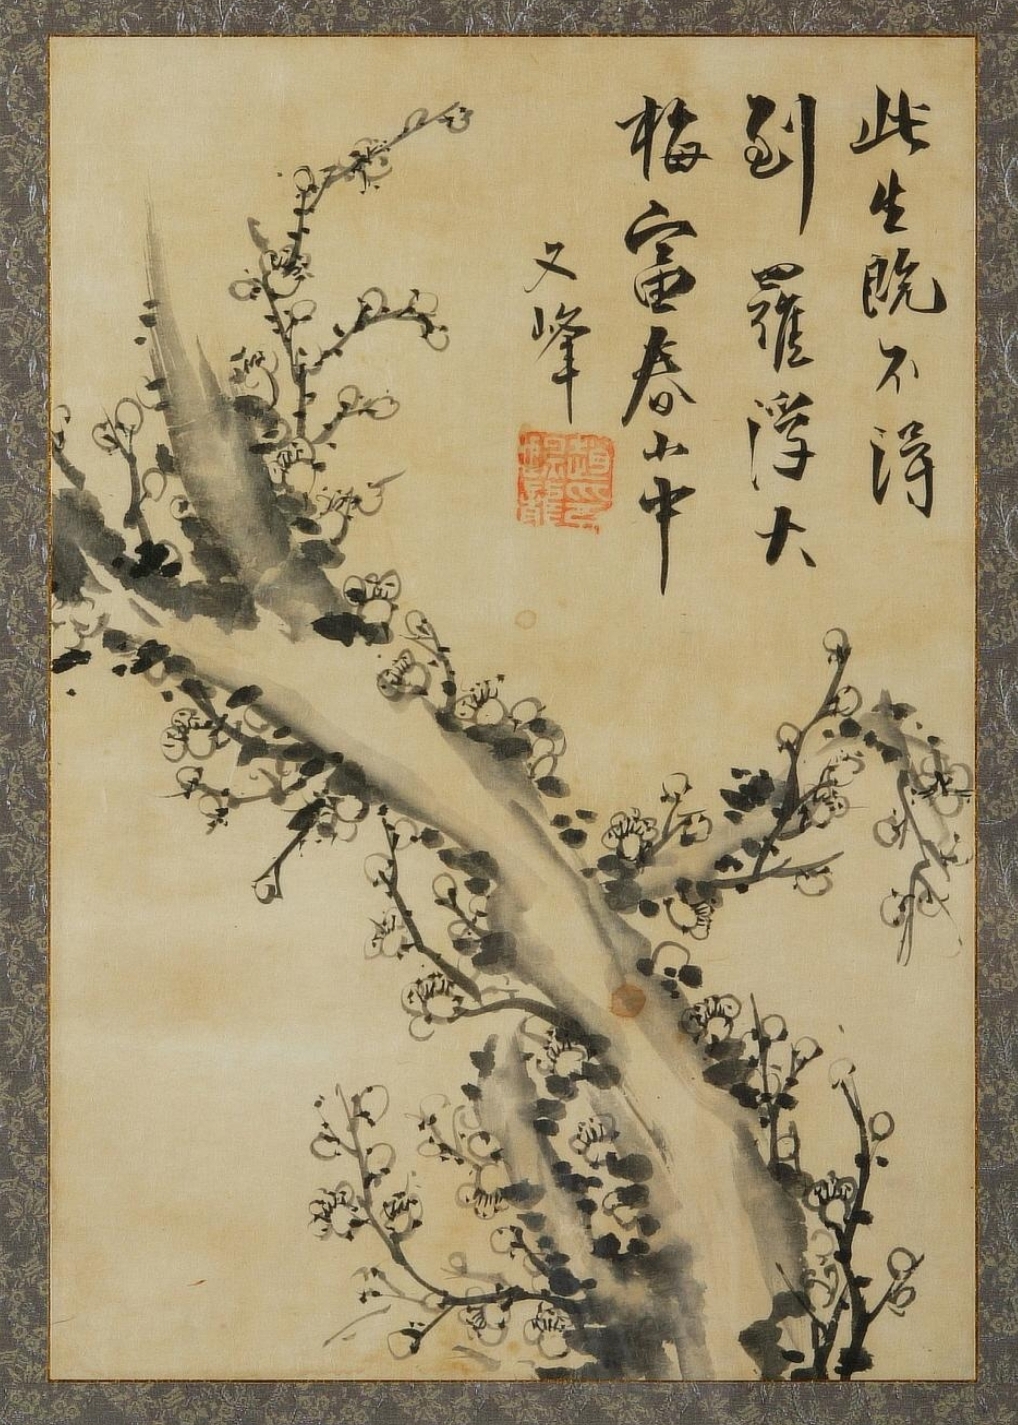 此生既不得
到羅浮大
梅富春山中
又峰